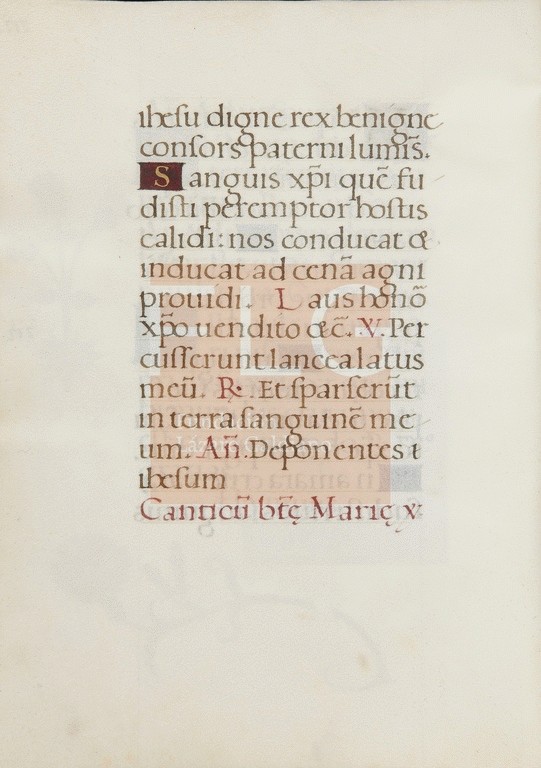 ihesu digne rex benigne
consors paterni lumīs.
Sanguis xp̄i quē fu
disti peremptor hostis
calidi: nos conducat &
inducat ad cenā agni
prouidi. Laus honō
xp̄o uendito &c̄. V. Per
cusserunt lancea latus
meū. R. Et sparserūt
in terra sanguinē me
um. Añ. Deponentes i
ihesum
Canticū btę̄ Marię v
TLG
Lázaro